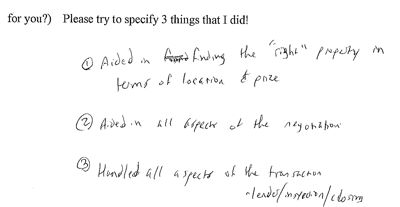 for you?) Please try to specify 3 things that I did!
① Aided in finding the "right" property in
terms of location & price
② Aided in all aspects of the negotiation
③ Handled all aspects of the transaction
-lender/inspection/closing